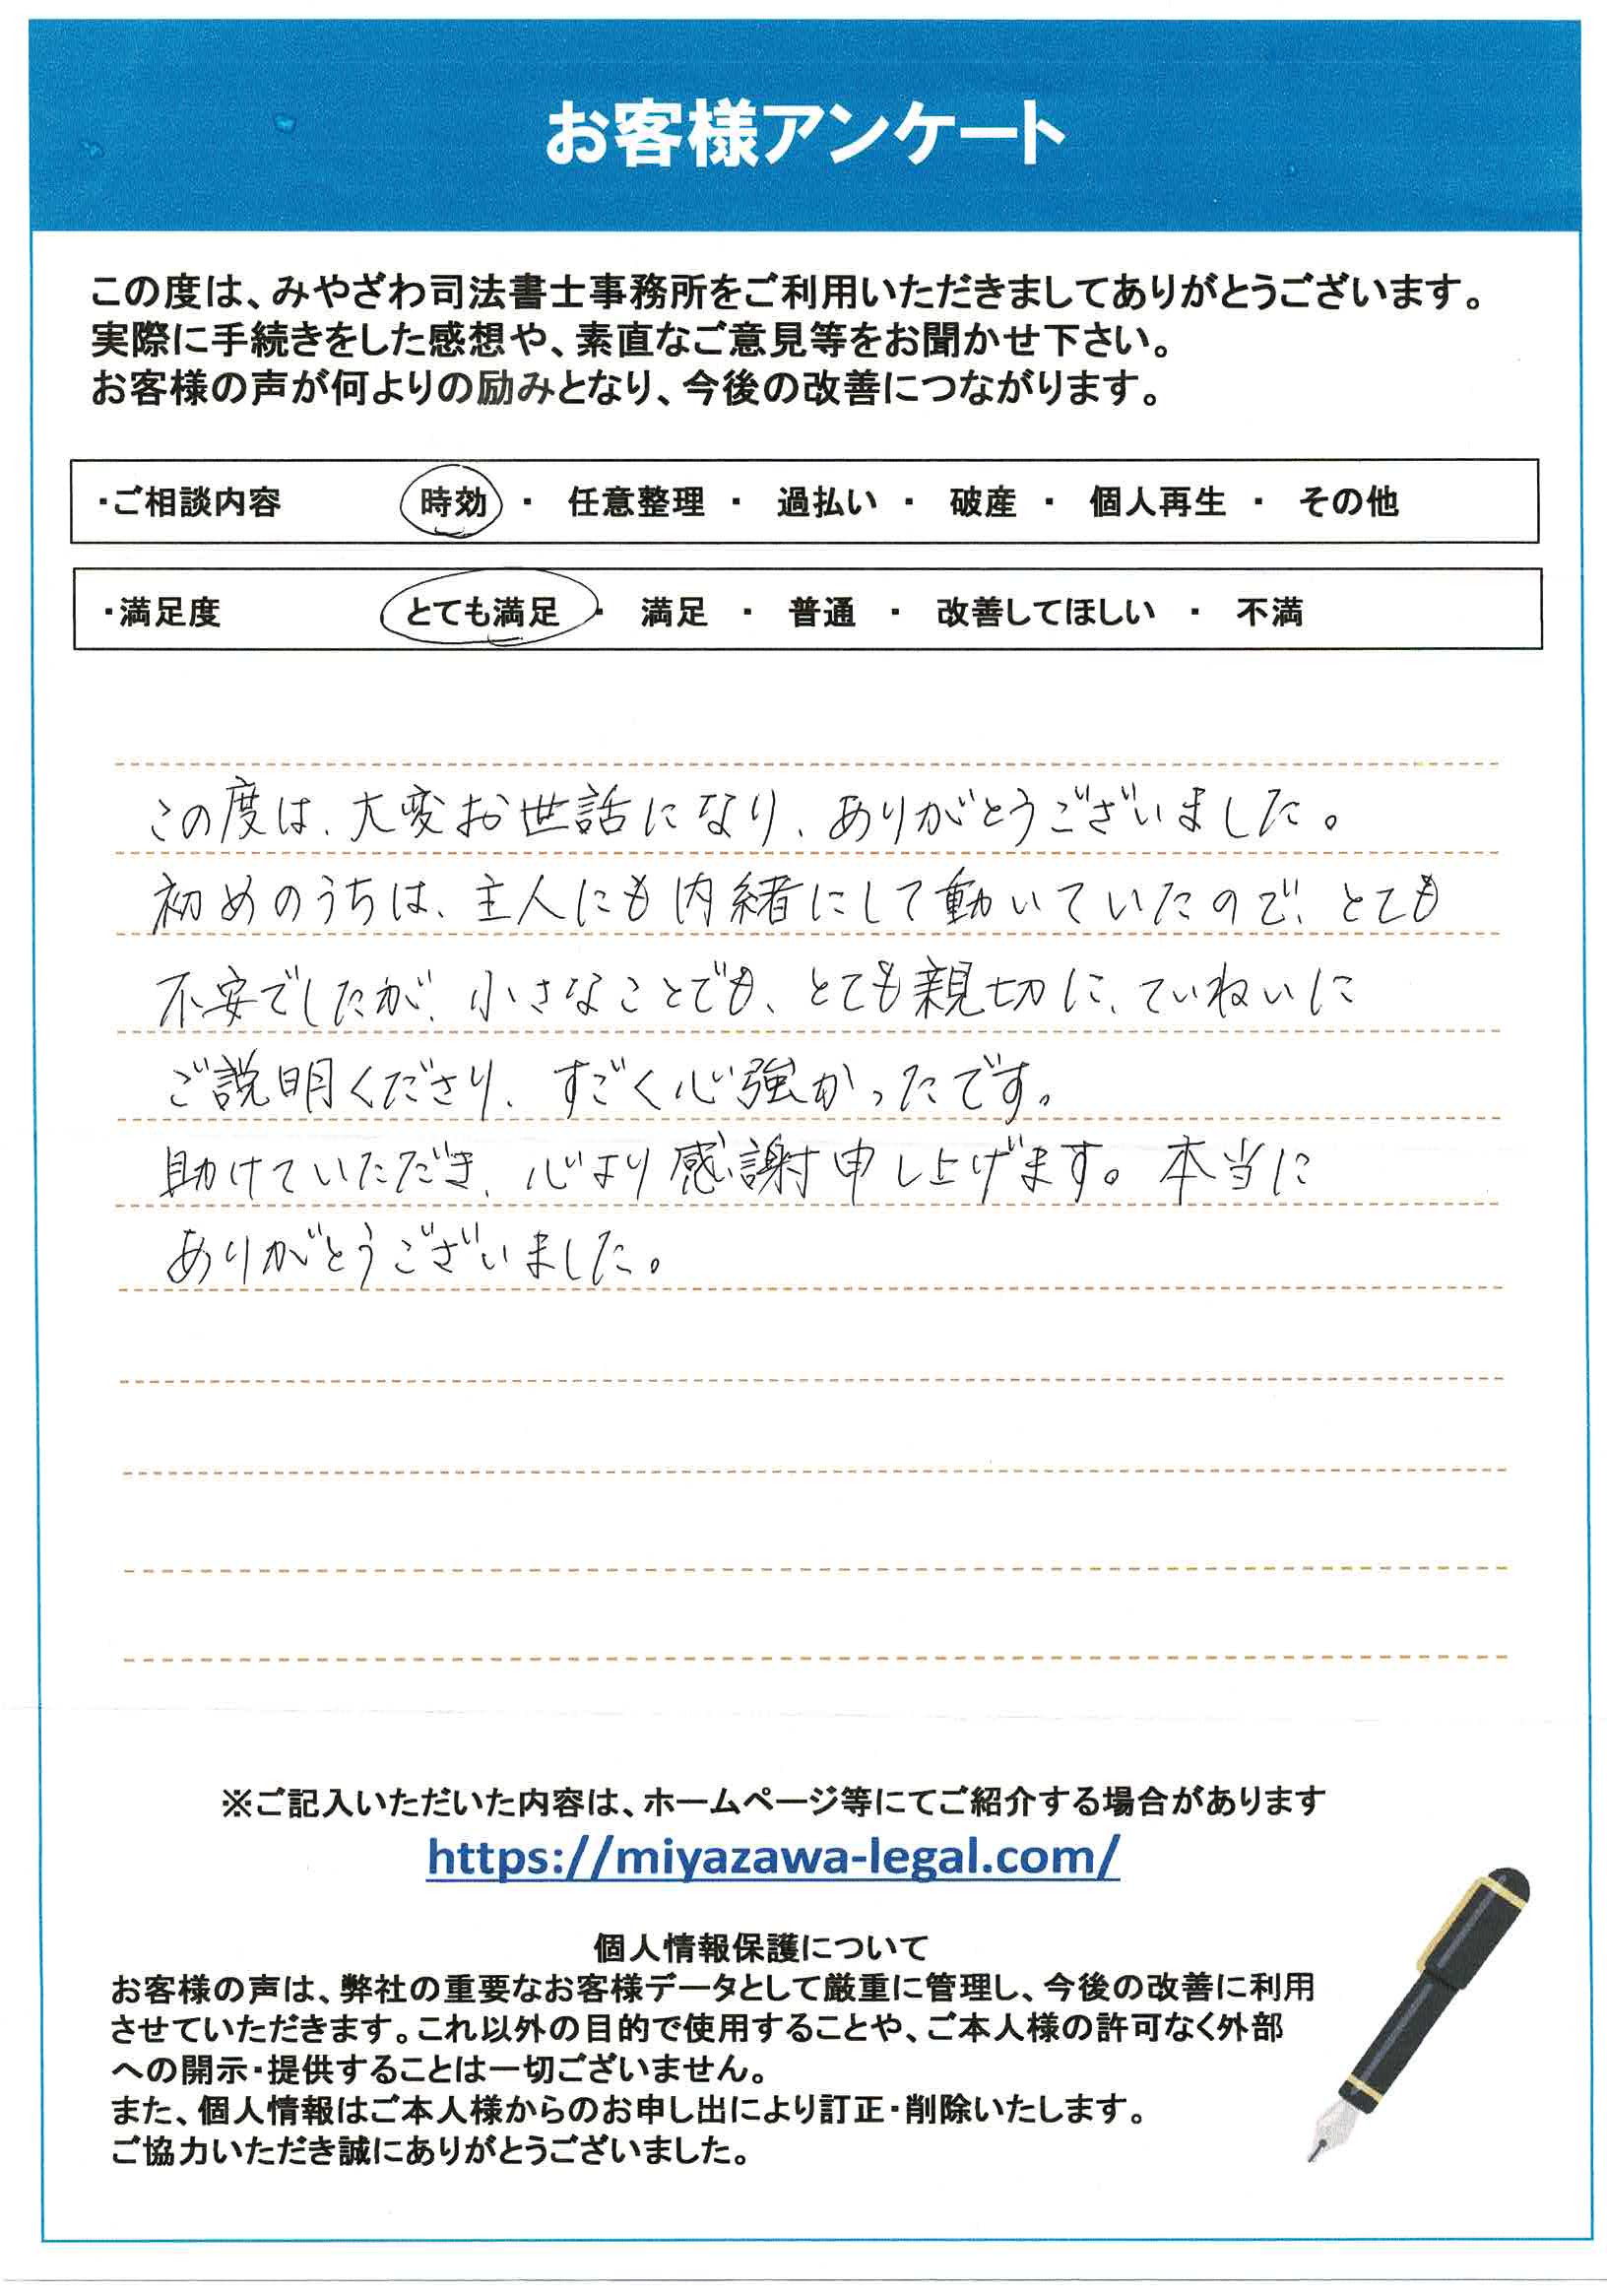 お客様アンケート
この度は、みやざわ司法書士事務所をご利用いただきましてありがとうございます。
実際に手続きをした感想や、素直なご意見等をお聞かせ下さい。
お客様の声が何よりの励みとなり、今後の改善につながります。
・ご相談内容 時効 ・ 任意整理 ・ 過払い ・ 破産 ・ 個人再生 ・ その他
・満足度 とても満足 ・ 満足 ・ 普通 ・ 改善してほしい ・ 不満
この度は、大変お世話になり、ありがとうございました。
初めのうちは、主人にも内緒にして動いていたので、とても
不安でしたが、小さなことでも、とても親切に、ていねいに
ご説明くださり、すごく心強かったです。
助けていただき、心より感謝申し上げます。本当に
ありがとうございました。
※ご記入いただいた内容は、ホームページ等にてご紹介する場合があります
https://miyazawa-legal.com/
個人情報保護について
お客様の声は、弊社の重要なお客様データとして厳重に管理し、今後の改善に利用
させていただきます。これ以外の目的で使用することや、ご本人様の許可なく外部
への開示・提供することは一切ございません。
また、個人情報はご本人様からのお申し出により訂正・削除いたします。
ご協力いただき誠にありがとうございました。